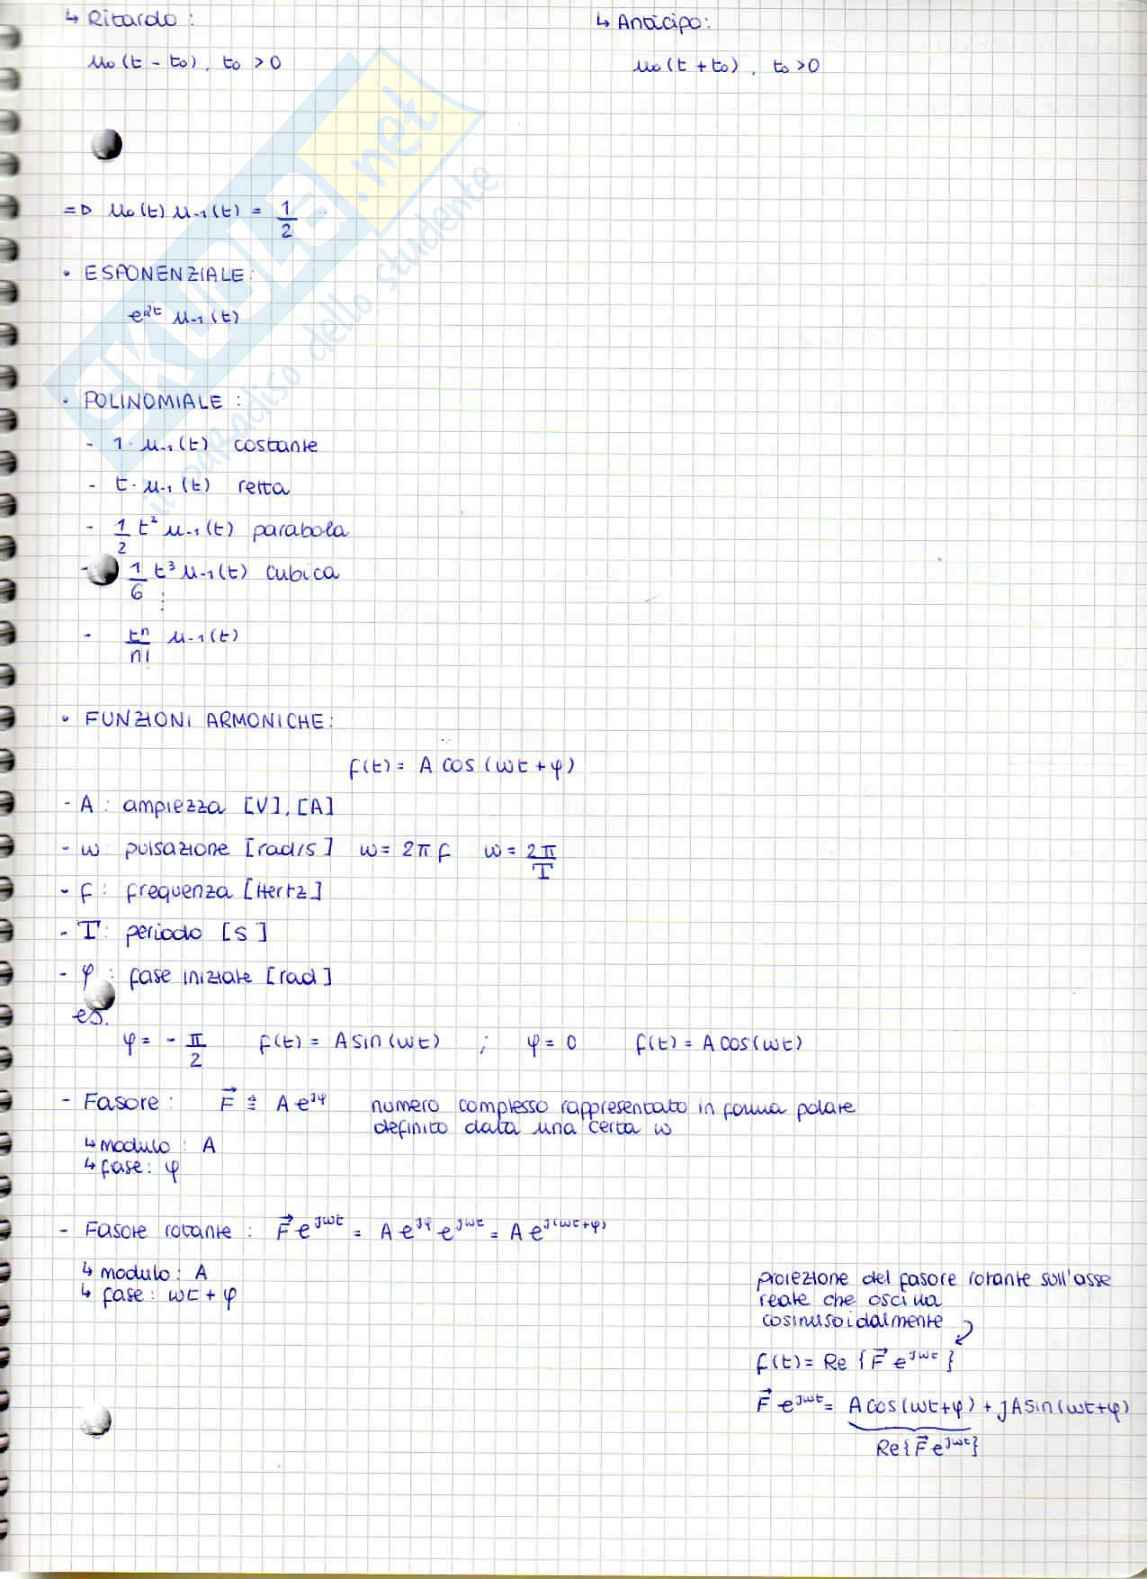 ↳ Ritardo :
u₀(t - t₀), t₀ > 0
↳ Anticipo:
u₀(t + t₀), t₀ > 0
SKUOLA.net
il paradiso dello studente
=D u₀(t) u₋₁(t) = 1/2
• ESPONENZIALE:
e^{αt} u₋₁(t)
• POLINOMIALE :
- 1· u₋₁(t) costante
- t· u₋₁(t) retta
- 1/2 t² u₋₁(t) parabola
- 1/6 t³ u₋₁(t) cubica
⋮
- tⁿ/n! u₋₁(t)
• FUNZIONI ARMONICHE:
f(t) = A cos (ωt + φ)
- A : ampiezza [V], [A]
- ω : pulsazione [rad/s] ω = 2π f ω = 2π/T
- f : frequenza [Hertz]
- T : periodo [s]
- φ : fase iniziale [rad]
es.
φ = - π/2 f(t) = A sin(ωt) ; φ = 0 f(t) = A cos(ωt)
- Fasore : F⃗ ≜ A e^{jφ} numero complesso rappresentato in forma polare
definito data una certa ω
↳ modulo : A
↳ fase : φ
- Fasore rotante : F⃗ e^{jωt} = A e^{jφ} e^{jωt} = A e^{j(ωt+φ)}
↳ modulo : A
↳ fase : ωt + φ
proiezione del fasore rotante sull'asse
reale che oscilla
cosinusoidalmente
f(t) = Re {F⃗ e^{jωt}}
F⃗ e^{jωt} = A cos(ωt+φ) + jA sin(ωt+φ)
Re{F⃗ e^{jωt}}